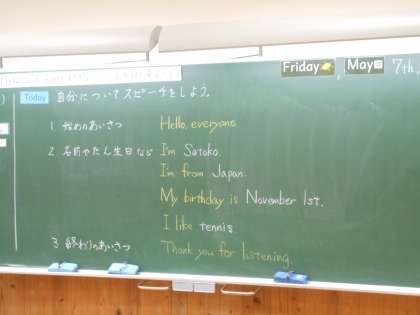 Friday, May 7th,
Today 自分についてスピーチをしよう。
1. 始めのあいさつ Hello, everyone.
2. 名前やたん生日など I'm Satoko.
I'm from Japan.
My birthday is November 1st.
I like tennis.
3. 終わりのあいさつ Thank you for listening.